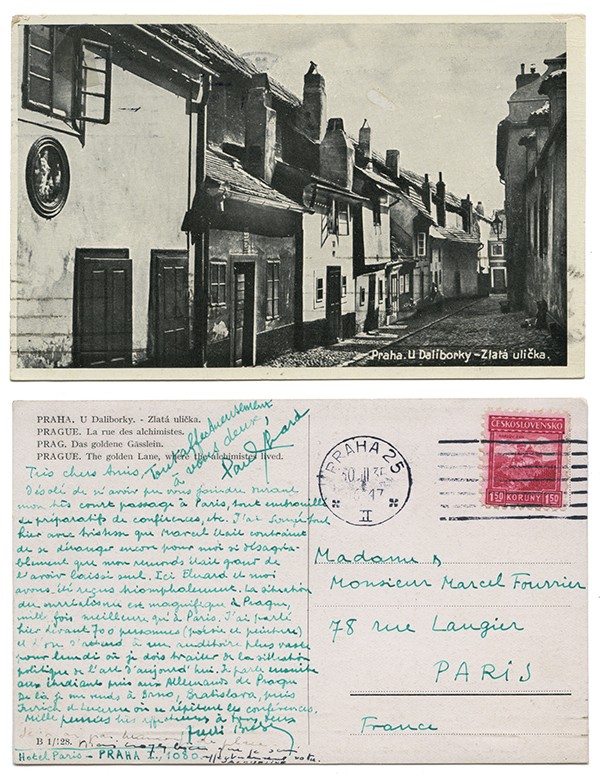 Praha. U Daliborky - Zlatá ulička.
PRAHA. U Daliborky. - Zlatá ulička.
PRAGUE. La rue des alchimistes.
PRAG. Das goldene Gässlein.
PRAGUE. The golden Lane, where the alchimistes lived.
Tout affectueusement
à vous deux!
Paul Eluard
Très chers Amis,
Désolé de n'avoir pu vous joindre durant
mon très court passage à Paris, tout
de préparatifs de conférences, etc. J'ai
hier avec tristesse que Marcel était contraint
de se déranger encore pour moi si désagréa-
blement que mon remords était grand de
l'avoir laissé seul. Ici Eluard et moi
avons été reçus triomphalement. La situation
du surréalisme est magnifique à Prague,
mille fois meilleure qu'à Paris. J'ai parlé
hier devant 700 personnes (poésie et peinture)
et l'on s'attend à un auditoire plus vaste
pour lundi où je dois traiter de la situation
politique de l'art d'aujourd'hui. Je parle ensuite
aux étudiants puis aux Allemands de Prague
De là je me rends à Brno, Bratislava, puis
Zurich et Lucerne où se répètent les conférences.
Mille pensées très affectueuses à tous deux
André Breton
B 1/128.
Hotel Paris - PRAHA I., 1080.
PRAHA 25
II
ČESKOSLOVENSKO
1·50 KORUNY 1·50
Madame &
Monsieur Marcel Fourrier
78 rue Laugier
PARIS
France